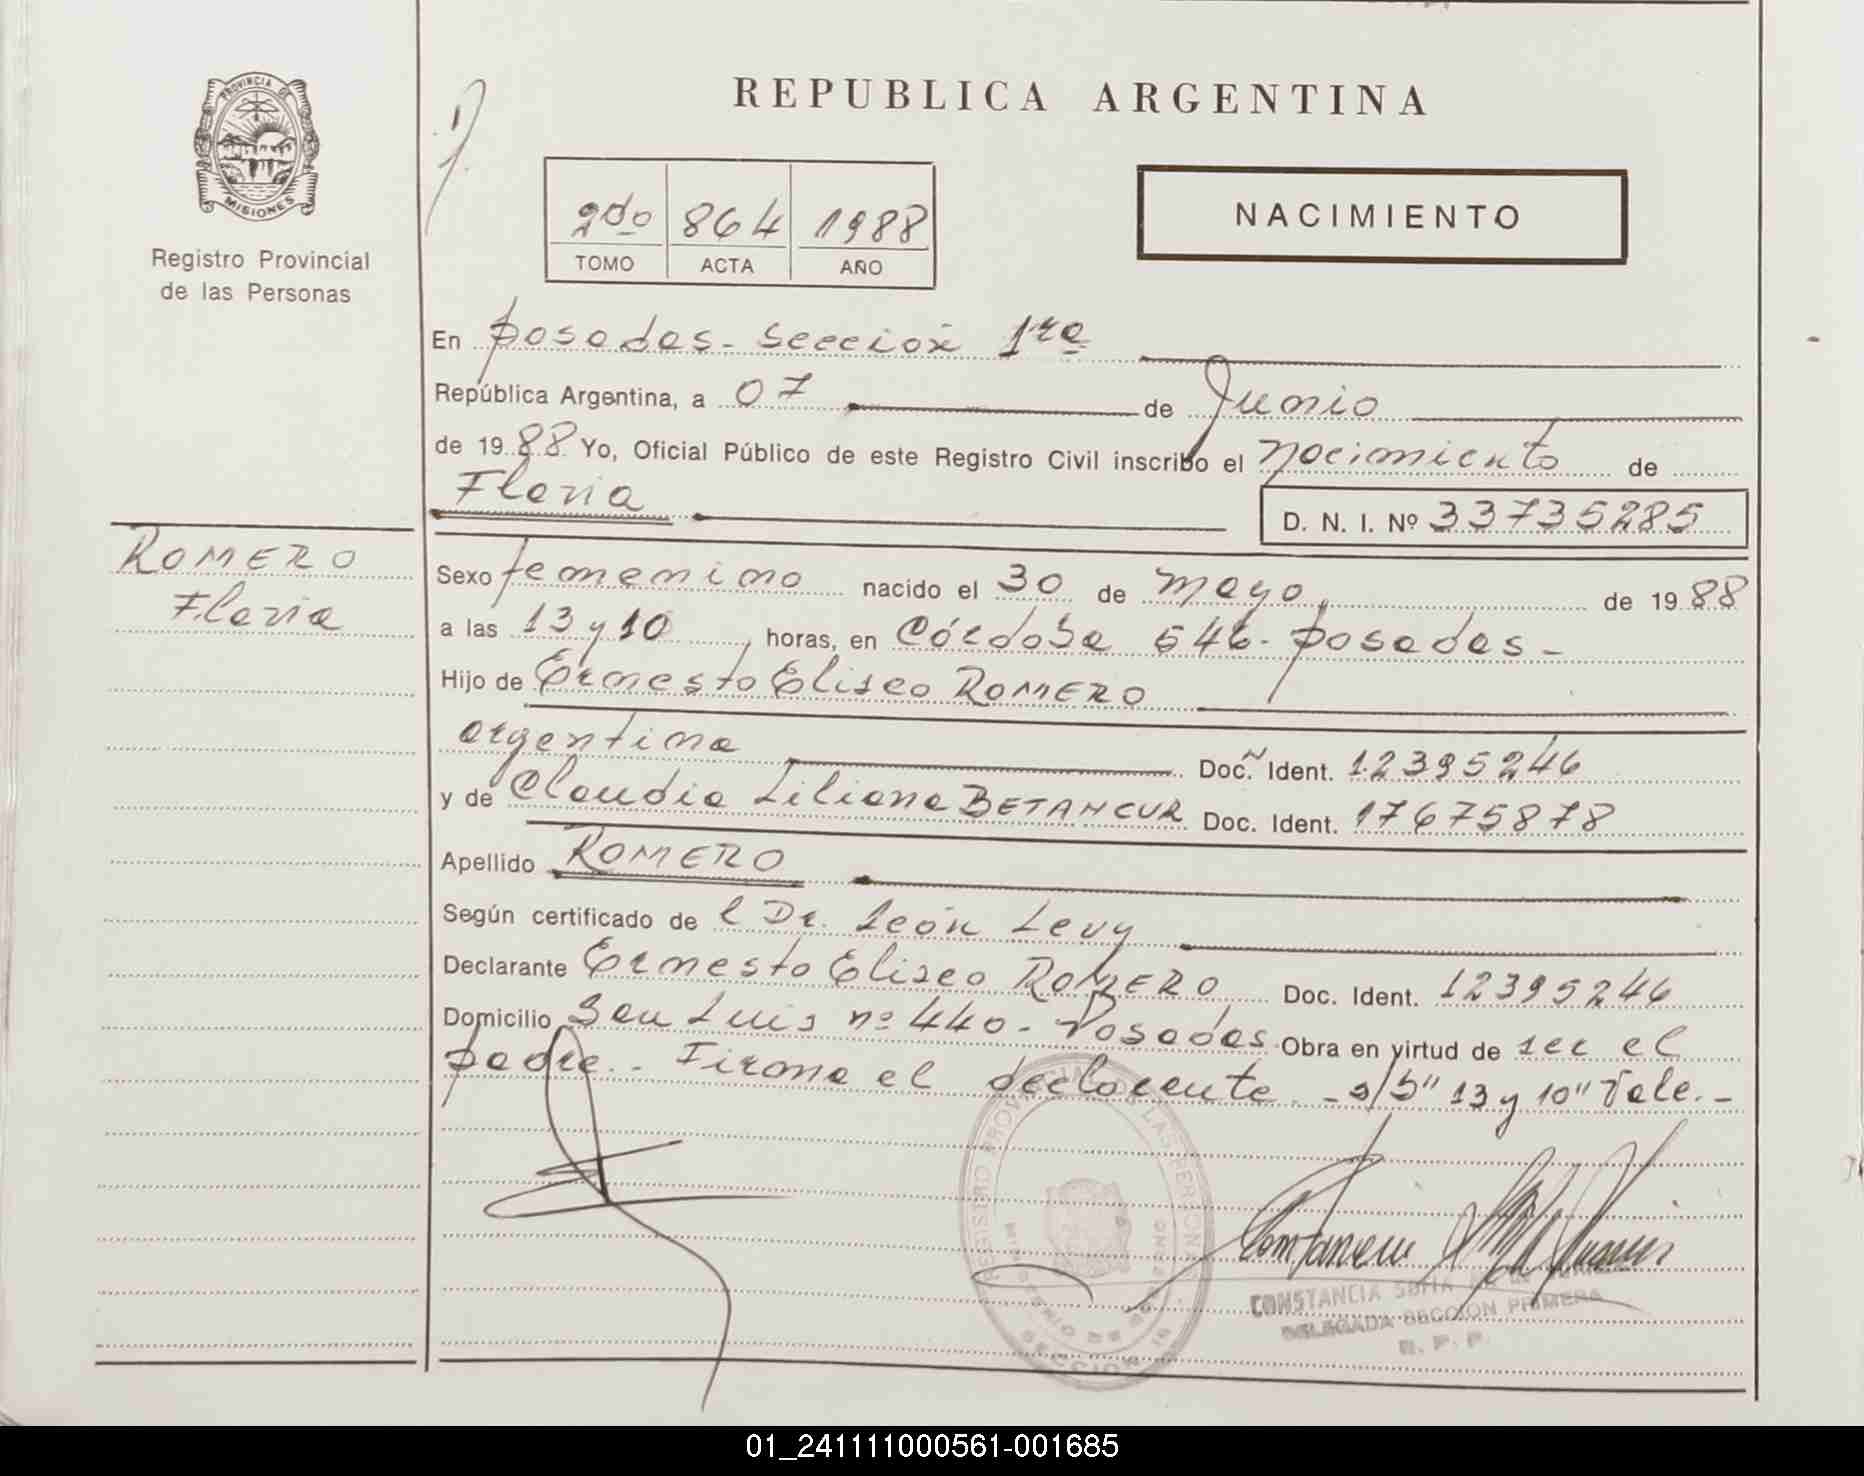 PROVINCIA DE
MISIONES
Registro Provincial
de las Personas
REPUBLICA ARGENTINA
2do 864 1988
TOMO ACTA AÑO
NACIMIENTO
En Posadas - Sección 1ra
República Argentina, a 07 de Junio
de 1988 Yo, Oficial Público de este Registro Civil inscribo el nacimiento de
Flavia
D. N. I. Nº 33735285
ROMERO
Flavia
Sexo femenino nacido el 30 de mayo, de 1988
a las 13 y 10, horas, en Córdoba 546 - Posadas -
Hijo de Ernesto Eliseo ROMERO
argentina Doc. Ident. 12395246
y de Claudia Liliana BETANCUR Doc. Ident. 17675878
Apellido ROMERO
Según certificado de l Dr. León Levy
Declarante Ernesto Eliseo ROMERO Doc. Ident. 12395246
Domicilio San Luis nº 440 - Posadas. Obra en virtud de ser el
padre.- Firma el declarante - s/b" 13 y 10" Vale.-
CONSTANCIA SOFIA
DELEGADA SECCION PRIMERA
R. P. P.
01_241111000561-001685